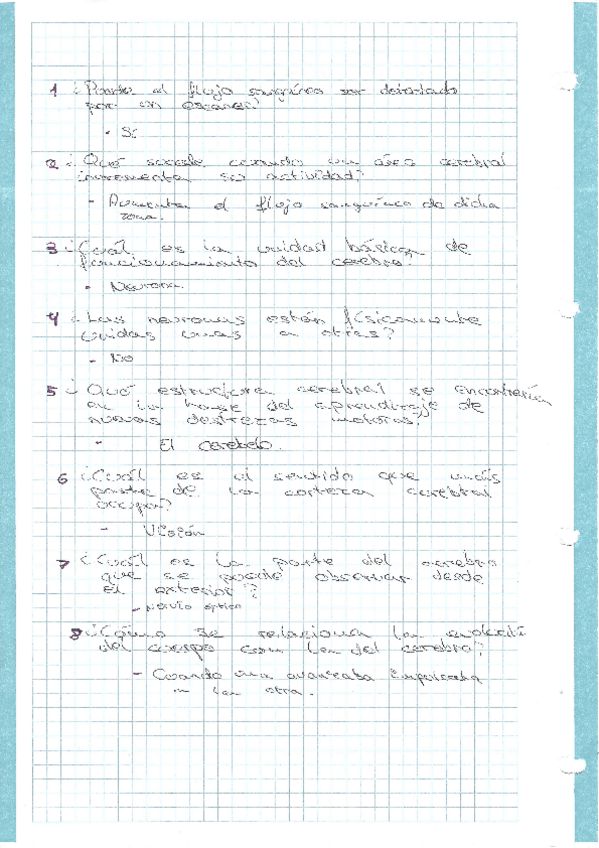 1 ¿Puede el flujo sanguíneo ser detectado
por un escáner?
- Sí
2 ¿Qué sucede cuando un área cerebral
incrementa su actividad?
- Aumenta el flujo sanguíneo de dicha
zona.
3 ¿Cuál es la unidad básica de
funcionamiento del cerebro?
- Neurona
4 ¿Las neuronas están físicamente
unidas unas a otras?
- No
5 ¿Qué estructura cerebral se encontraría
en la base del aprendizaje de
nuevas destrezas motoras?
- El cerebelo.
6 ¿Cuál es el sentido que más
parte de la corteza cerebral
ocupa?
- Visión
7 ¿Cuál es la parte del cerebro
que se puede observar desde
el exterior?
- nervio óptico
8 ¿Cómo se relaciona la
del cuerpo con la del cerebro?
- Cuando una avanzaba
la otra.